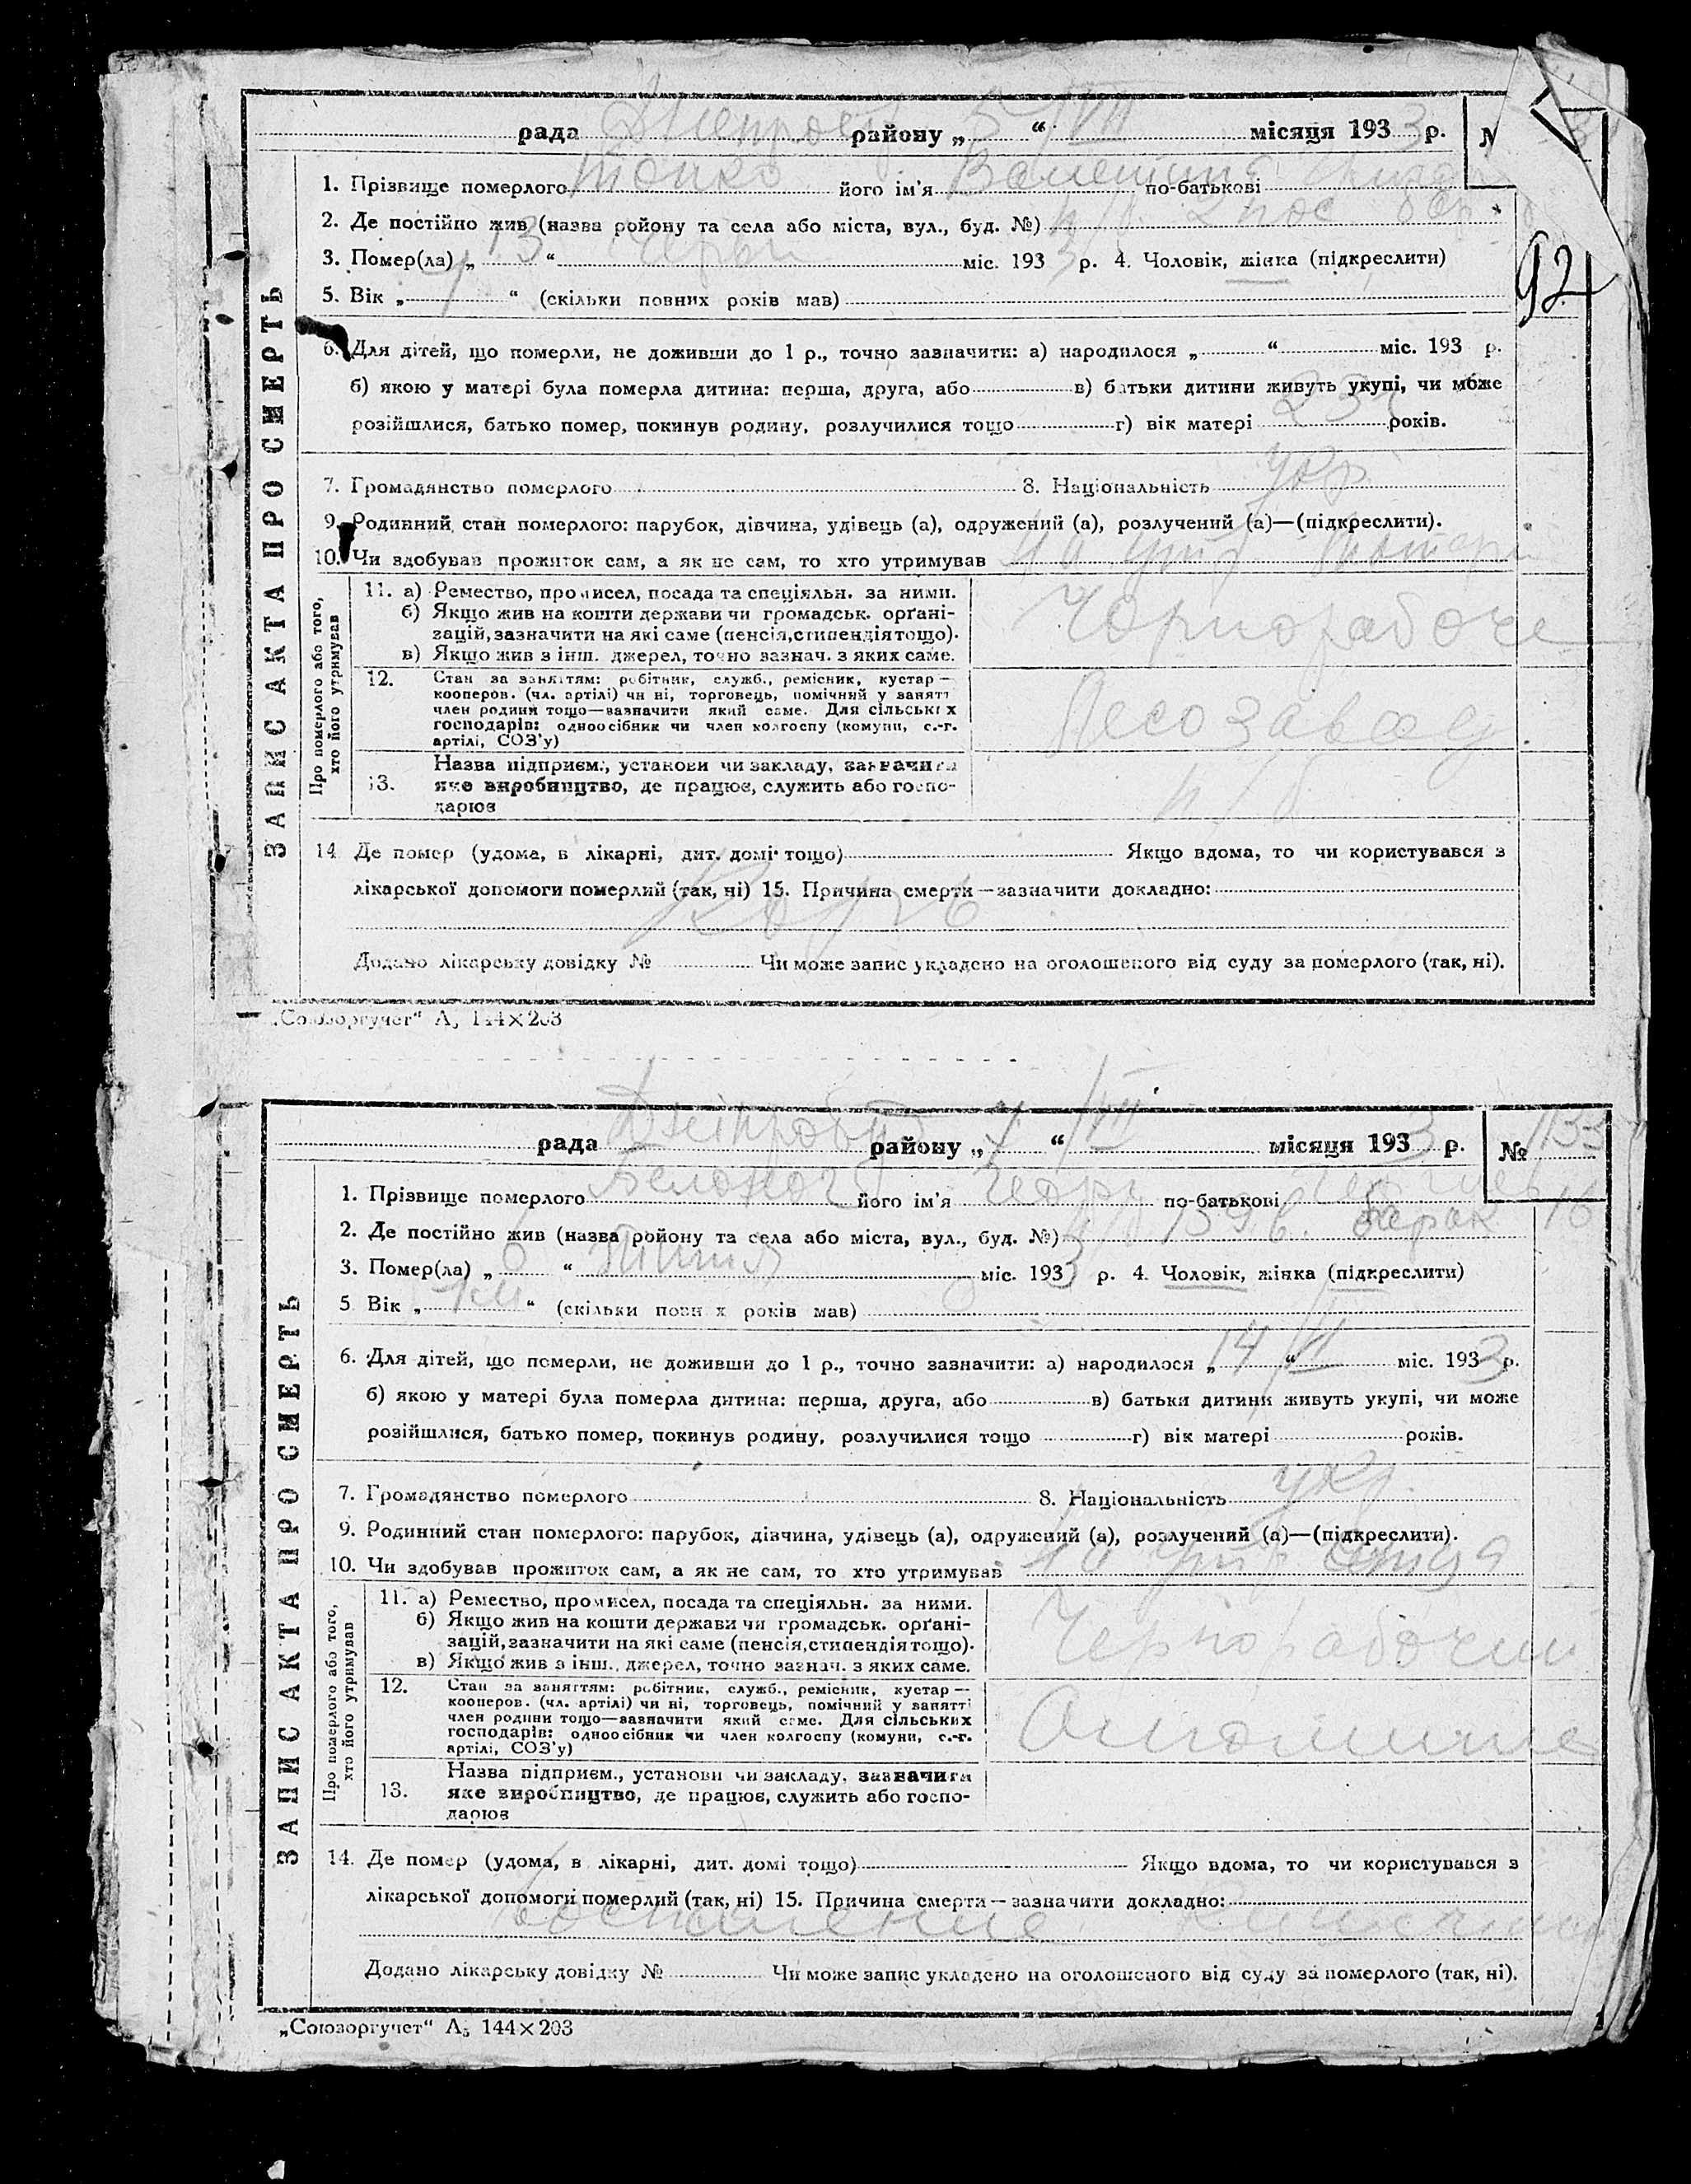 рада районy „ 5 “ VII місяця 193 3 р. №
1. Прізвище померлого його ім’я по-батькові
2. Де постійно жив (назва ройону та села або міста, вул., буд. №) п/б 2 пос
3. Помер(ла) „ 13 “ міс. 193 3 р. 4. Чоловік, жінка (підкреслити)
92
5. Вік „ 1 “ (скільки повних років мав)
6. Для дітей, що померли, не доживши до 1 р., точно зазначити: а) народилося „ “ міс. 193 р.
б) якою у матері була померла дитина: перша, друга, або в) батьки дитини живуть укупі, чи може
розійшлися, батько помер, покинув родину, розлучилися тощо г) вік матері 23 років.
7. Громадянство померлого 8. Національність укр
9. Родинний стан померлого: парубок, дівчина, удівець (а), одружений (а), розлучений (а)—(підкреслити).
10. Чи здобував прожиток сам, а як не сам, то хто утримував на утр матери
ЗАПИС АКТА ПРО СМЕРТЬ
Про померлого або того, хто його утримував
11. а) Ремество, промисел, посада та спеціяльн. за ними.
б) Якщо жив на кошти держави чи громадськ. орґані-
зацій, зазначити на які саме (пенсія, стипендія тощо).
в) Якщо жив з інш. джерел, точно зазнач. з яких саме.
Чорнорабоче
12. Стан за заняттям: робітник, служб., ремісник, кустар —
кооперов. (чл. артілі) чи ні, торговець, помічний у занятт
член родини тощо—зазначити який саме. Для сільських
господарів: одноосібник чи член колгоспу (комуни, с.-г.
артілі, СОЗ’у)
Лесозавод
13. Назва підприєм., установи чи закладу, зазначити
яке виробництво, де працює, служить або госпо-
дарює
п/б
14 Де помер (удома, в лікарні, дит. домі тощо) Якщо вдома, то чи користувався з
лікарської допомоги померлий (так, ні) 15. Причина смерти—зазначити докладно:
Корь
Додано лікарську довідку № Чи може запис укладено на оголошеного від суду за померлого (так, ні).
„Союзоргучет“ А5 144×203
рада районy „ “ VII місяця 193 3 р. № 1133
1. Прізвище померлого його ім’я по-батькові
2. Де постійно жив (назва ройону та села або міста, вул., буд. №) барак 16
3. Помер(ла) „ 6 “ міс. 193 3 р. 4. Чоловік, жінка (підкреслити)
5 Вік „ 1 м “ (скільки повних років мав)
6. Для дітей, що померли, не доживши до 1 р., точно зазначити: а) народилося „ 14 “ міс. 193 3 р.
б) якою у матері була померла дитина: перша, друга, або в) батьки дитини живуть укупі, чи може
розійшлися, батько помер, покинув родину, розлучилися тощо г) вік матері років.
7. Громадянство померлого 8. Національність укр.
9. Родинний стан померлого: парубок, дівчина, удівець (а), одружений (а), розлучений (а)—(підкреслити).
10. Чи здобував прожиток сам, а як не сам, то хто утримував на утр отца
ЗАПИС АКТА ПРО СМЕРТЬ
Про померлого або того, хто його утримував
11. а) Ремество, промисел, посада та спеціяльн. за ними.
б) Якщо жив на кошти держави чи громадськ. орґані-
зацій, зазначити на які саме (пенсія, стипендія тощо).
в) Якщо жив з інш. джерел, точно зазнач. з яких саме.
Чернорабочий
12. Стан за заняттям: робітник, служб., ремісник, кустар —
кооперов. (чл. артілі) чи ні, торговець, помічний у занятті
член родини тощо—зазначити який саме. Для сільських
господарів: одноосібник чи член колгоспу (комуни, с.-г.
артілі, СОЗ’у)
13. Назва підприєм., установи чи закладу, зазначити
яке виробництво, де працює, служить або госпо-
дарює
14. Де помер (удома, в лікарні, дит. домі тощо) Якщо вдома, то чи користувався з
лікарської допомоги померлий (так, ні) 15. Причина смерти—зазначити докладно:
воспаление
Додано лікарську довідку № Чи може запис укладено на оголошеного від суду за померлого (так, ні).
„Союзоргучет“ А5 144×203